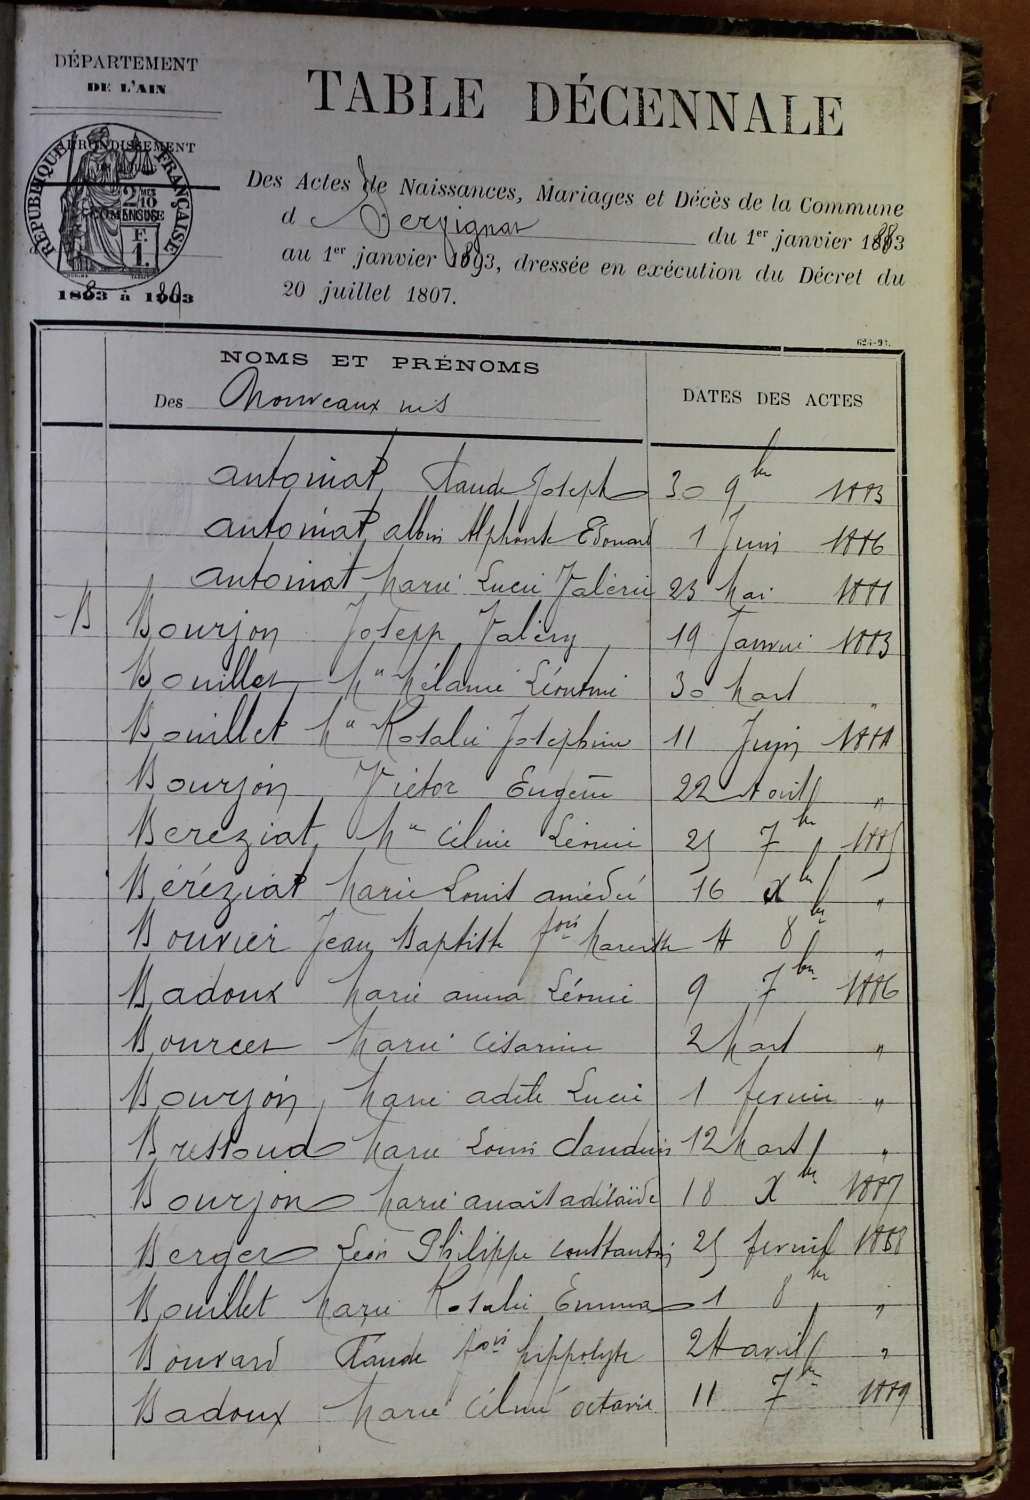 DÉPARTEMENT
DE L'AIN
ARRONDISSEMENT
RÉPUBLIQUE FRANÇAISE
2 MES
10
EN SUS
F.
1.
1883 à 1893
TABLE DÉCENNALE
Des Actes de Naissances, Mariages et Décès de la Commune
d Servignat du 1er janvier 1883
au 1er janvier 1893, dressée en exécution du Décret du
20 juillet 1807.
NOMS ET PRÉNOMS
Des Nouveaux nés
DATES DES ACTES
antoniat Claude Joseph 30 9bre 1883
antoniat albin Alphonse Edouard 1 Juin 1886
antoniat Marie Lucie Valérie 23 Mai 1888
B Bourjon Joseph Valéry 19 Janvier 1883
Bouillet Mie Mélanie Léontine 30 Mars "
Bouillet Mie Rosalie Joséphine 11 Juin 1884
Bourjon Victor Eugène 22 Avril "
Bereziat Mie Céline Léonie 25 7bre 1885
Béréziat Marie Louis amédée 16 Xbre "
Bouvier Jean Baptiste fois 4 8bre "
Badoux Marie anna Léonie 9 7bre 1886
Bourcet Marie Césarine 2 Mars "
Bourjon Marie adèle Lucie 1 fevrier "
Bressoud Marie Louis Claudius 12 Mars "
Bourjon Marie anaïs adélaïde 18 Xbre 1887
Berger Léon Philippe Constantin 25 fevrier 1888
Bouillet Marie Rosalie Emma 1 8bre "
Bouvard Claude fois hippolyte 24 avril "
Badoux Marie Céline octavie 11 7bre 1889